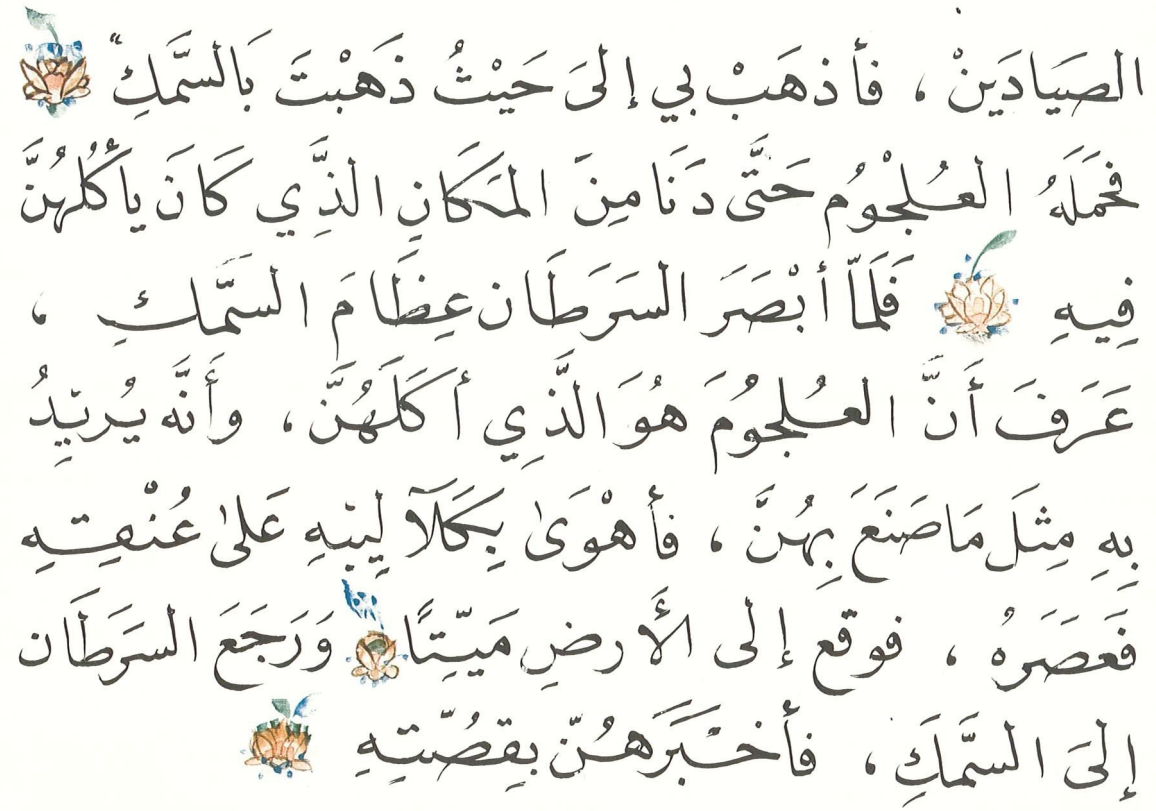 الصَيَادَينْ ، فأذهَبْ بي إلىَ حَيْثُ ذَهَبْتَ بَالسَّمَكِ"
فحَمَلَهُ العُلجْوُم حَتَّى دَنَا مِنَ المَكَانِ الذَّيِ كَانَ يأكُلهُنَّ
فِيهِ فَلَمّا أبْصَرَ السَرَطَان عِظَامَ السَمّكِ ،
عَرَفَ أَنَّ العُلجوُمَ هوَ الذَّيِ أكَلَهُنَّ ، وأَنَّه يُريّدُ
بِهِ مِثلَ مَاصَنَعَ بِهُنَّ ، فأهْوَىٰ بِكَلآليِبّهِ عَلىٰ عُنْقِتهِ
فَعَصَرَهُ ، فوقع إلى الأَرضِ مَيّتِاً وَرَجَعَ السَرَطَان
إلىَ السَمّكَِ ، فأخبَرَهُنّ بقِصُتّهِ